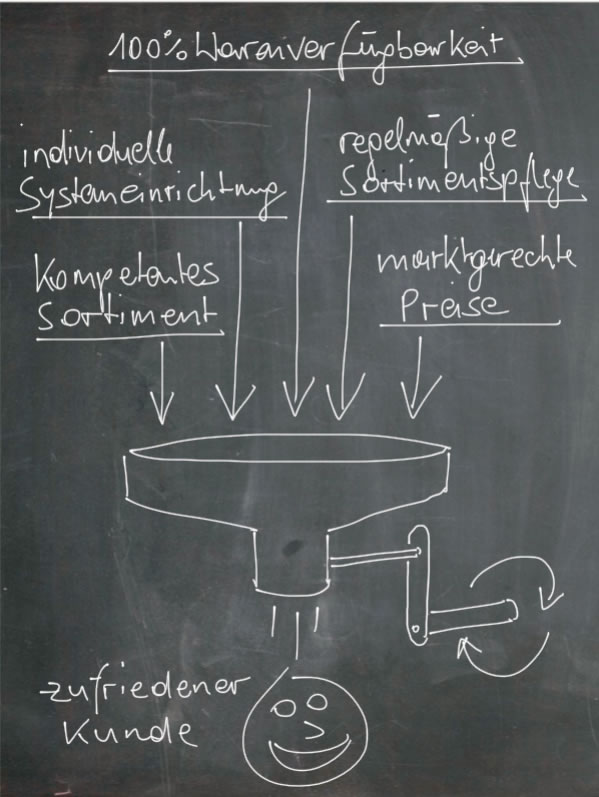 100% Warenverfügbarkeit
individuelle
Systemeinrichtung
regelmäßige
Sortimentspflege
Kompetentes
Sortiment
marktgerechte
Preise
zufriedener
Kunde